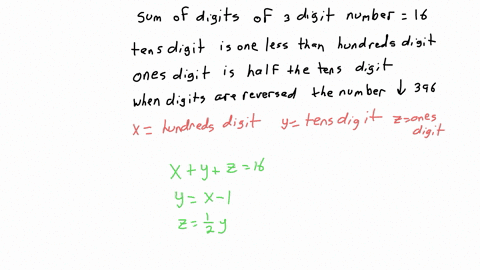 Sum of digits of 3 digit number = 16
tens digit is one less than hundreds digit
ones digit is half the tens digit
when digits are reversed the number ↓ 396
x = hundreds digit y = tens digit z = ones digit
x + y + z = 16
y = x - 1
z = 1/2 y